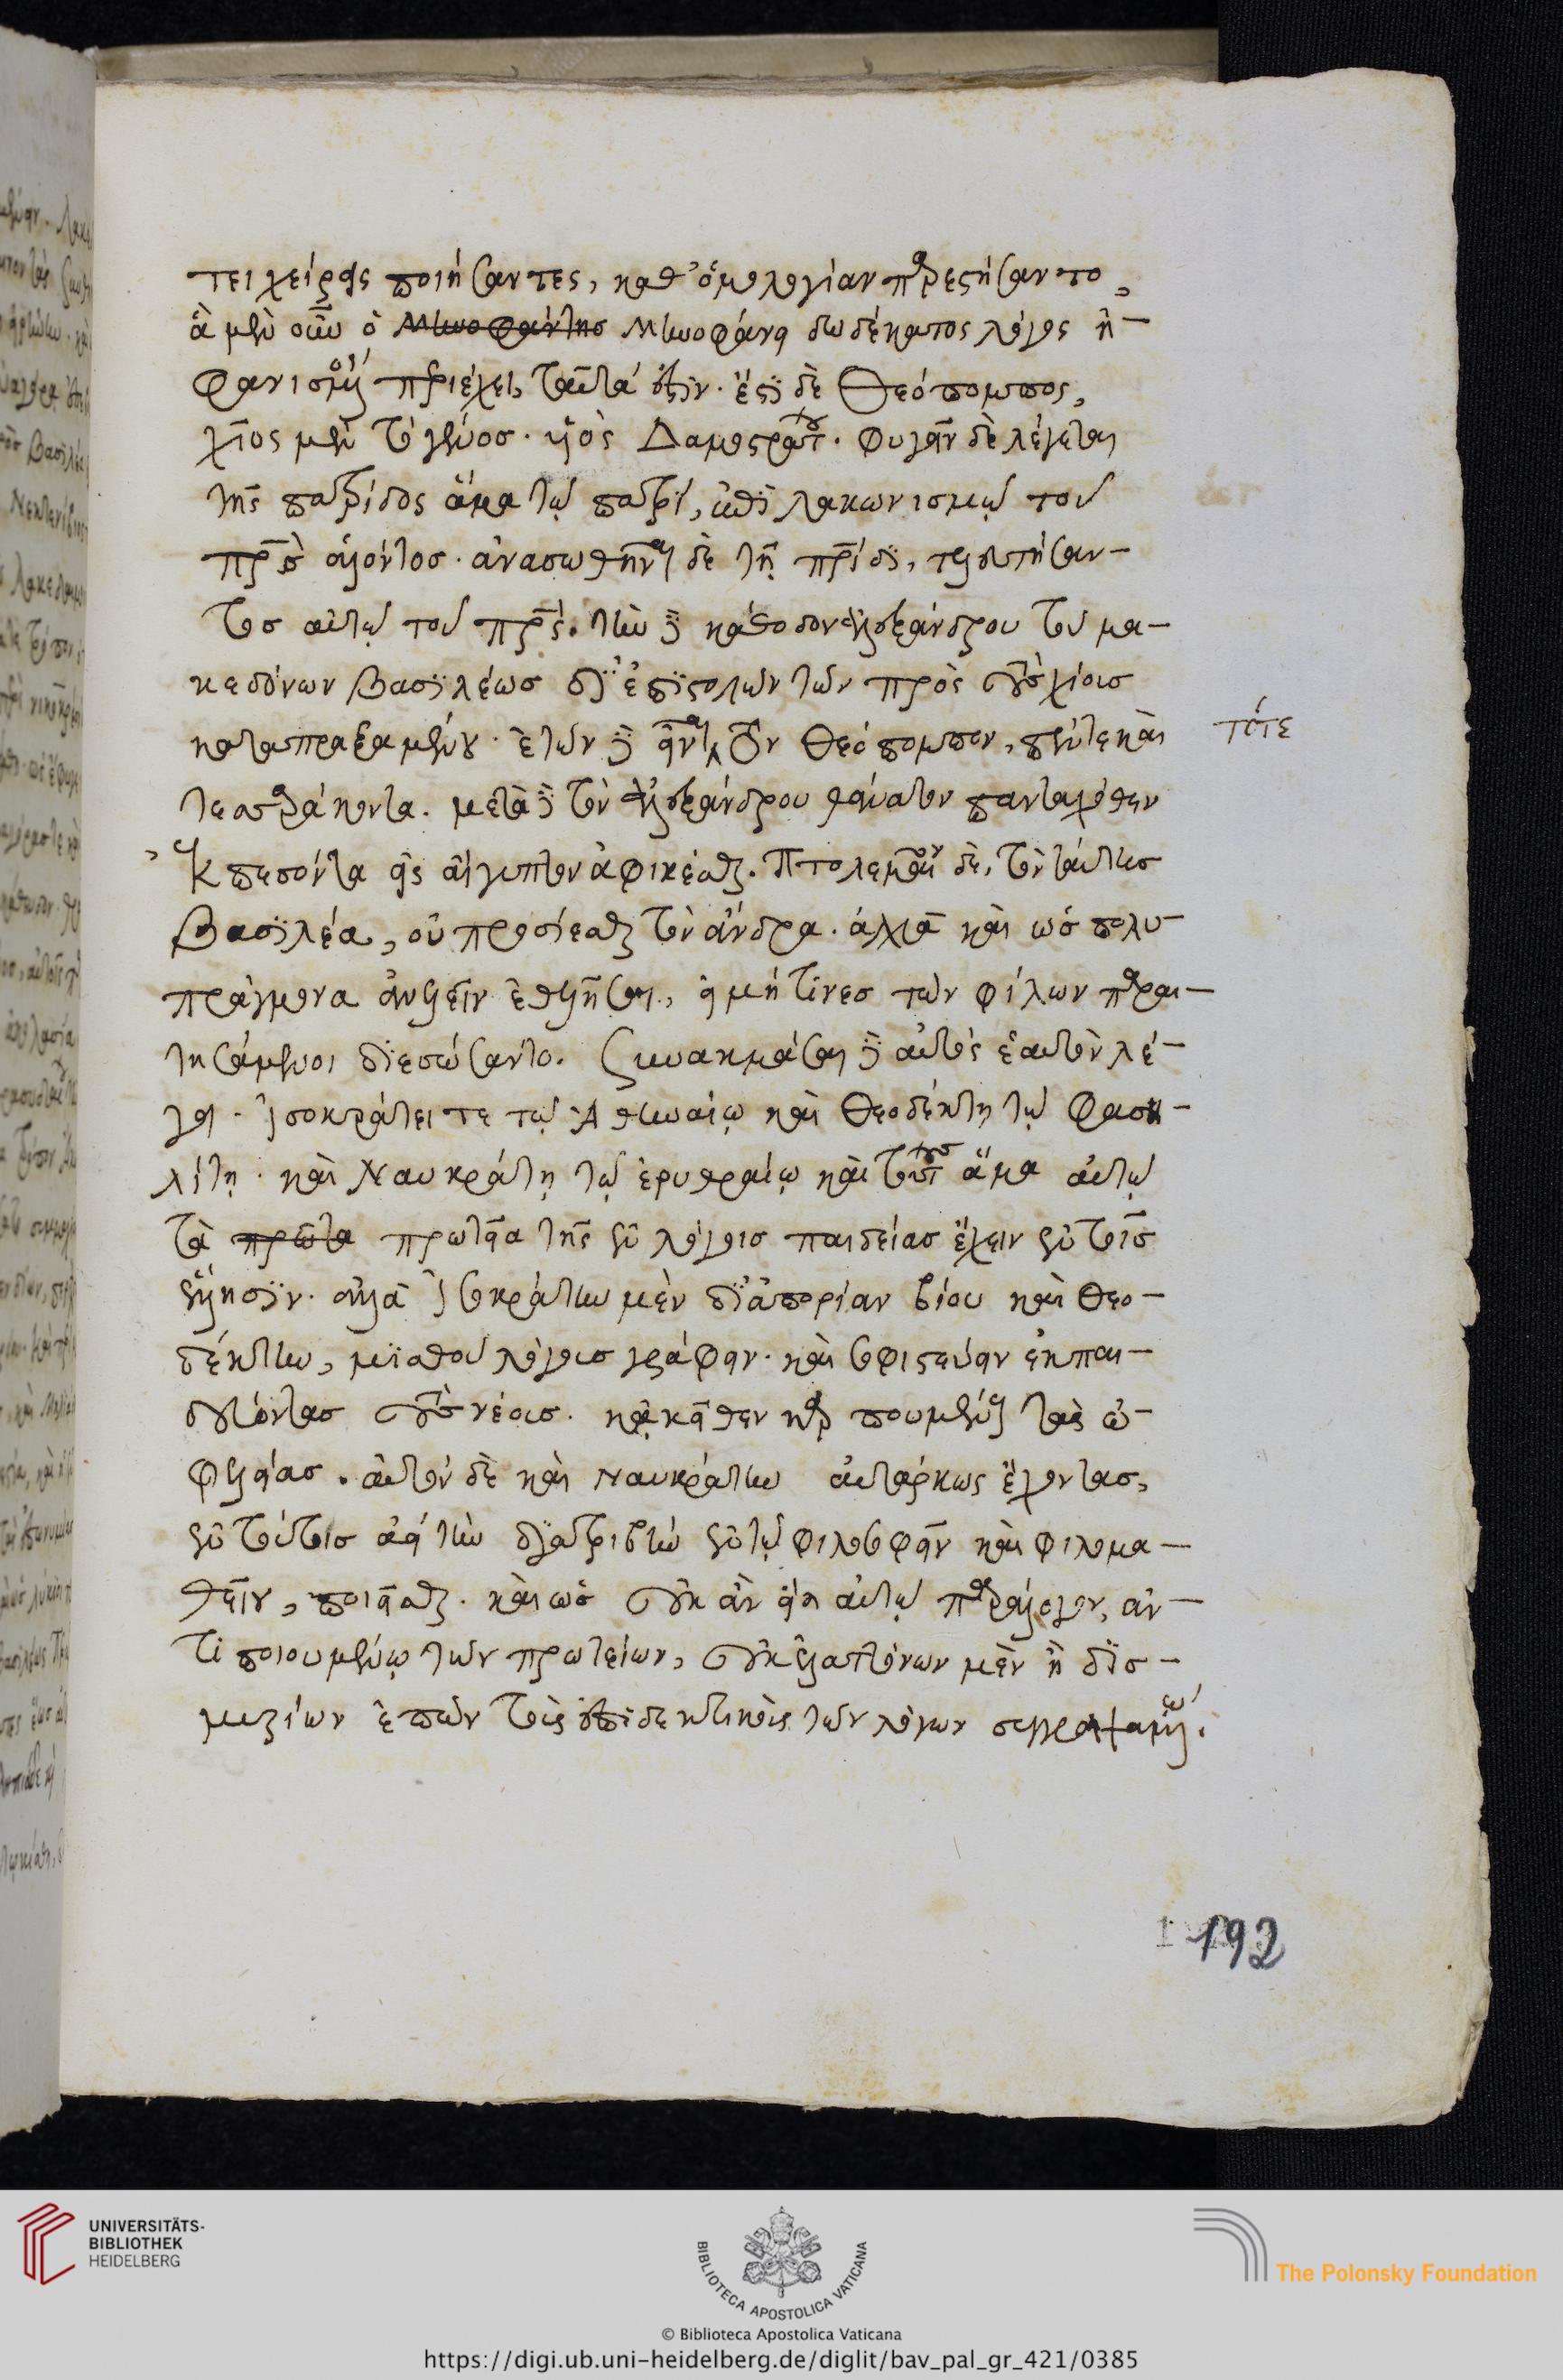 τει χείρας ποιήσαντες, καθ' ὁμολογίαν παρεστήσαντο,
ἃ μὲν οὖν ὁ Μηνοφάντης Μηνοφάνει δωδέκατος λόγος ἠ-
φανισμένος περιέχει, ταῦτά ἐστιν. ἔστι δὲ Θεόπομπος,
χῖος μὲν τὸ γένος. υἱὸς Δαμοστράτου. φυγεῖν δὲ λέγεται
τῆς πατρίδος ἅμα τῷ πατρί, ἐπὶ λακωνισμῷ τοῦ
πρς ἁλόντος. ἀνασωθῆναι δὲ τῇ πρίδι, τελευτήσαν-
τος αὐτῷ τοῦ πρς. τὴν δὲ κάθοδον ἀλεξάνδρου τοῦ μα-
κεδόνων βασιλέως δι' ἐπιστολῶν τῶν πρὸς τοὺς χίους
καταπραξαμένου. ἐτῶν δὲ εἶναι τὸν Θεόπομπον, πέντε καὶ
τότε
τεσσαράκοντα. μετὰ δὲ τὸν ἀλεξάνδρου θάνατον πανταχόθεν
ἐκπεσόντα εἰς αἴγυπτον ἀφικέσθαι. Πτολεμαῖον δὲ, τὸν ταύτης
βασιλέα, οὐ προσίεσθαι τὸν ἄνδρα. ἀλλὰ καὶ ὡς πολυ-
πράγμονα ἀνελεῖν ἐθελῆσαι, εἰ μή τινες τῶν φίλων παραι-
τησάμενοι διεσώσαντο. συνακμάσαι δὲ αὐτὸς ἑαυτὸν λέ-
γει. ἰσοκράτει τε τῷ Ἀθηναίῳ καὶ Θεοδέκτῃ τῷ Φαση-
λίτῃ. καὶ Ναυκράτῃ τῷ ἐρυθραίῳ καὶ τούτους ἅμα αὐτῷ
τὰ πρῶτα πρωτεῖα τῆς ἐν λόγοις παιδείας ἔχειν ἐν τοῖς
ἕλλησιν. ἀλλὰ ἰσοκράτην μὲν δι' ἀπορίαν βίου καὶ Θεο-
δέκτην, μισθοῦ λόγους γράφειν. καὶ σοφιστεύειν ἐκπαι-
δεύοντας τοὺς νέους. κἀκεῖθεν καρπουμένους τὰς ὠ-
φελείας. αὐτὸν δὲ καὶ Ναυκράτην αὐτάρκως ἔχοντας,
ἐν τούτοις ἀεὶ τὴν διατριβὴν ἐν τῷ φιλοσοφεῖν καὶ φιλομα-
θεῖν, ποιεῖσθαι. καὶ ὡς οὐκ ἂν εἴη αὐτῷ παράλογον, ἀν-
τιποιουμένῳ τῶν πρωτείων, οὐκ ἐλαττόνων μὲν ἢ δισ-
μυρίων ἐπῶν τοὺς ἐπιδεικτικοὺς τῶν λόγων συγγραψαμένῳ.
192
UNIVERSITÄTS-
BIBLIOTHEK
HEIDELBERG
BIBLIOTECA APOSTOLICA VATICANA
The Polonsky Foundation
© Biblioteca Apostolica Vaticana
https://digi.ub.uni-heidelberg.de/diglit/bav_pal_gr_421/0385